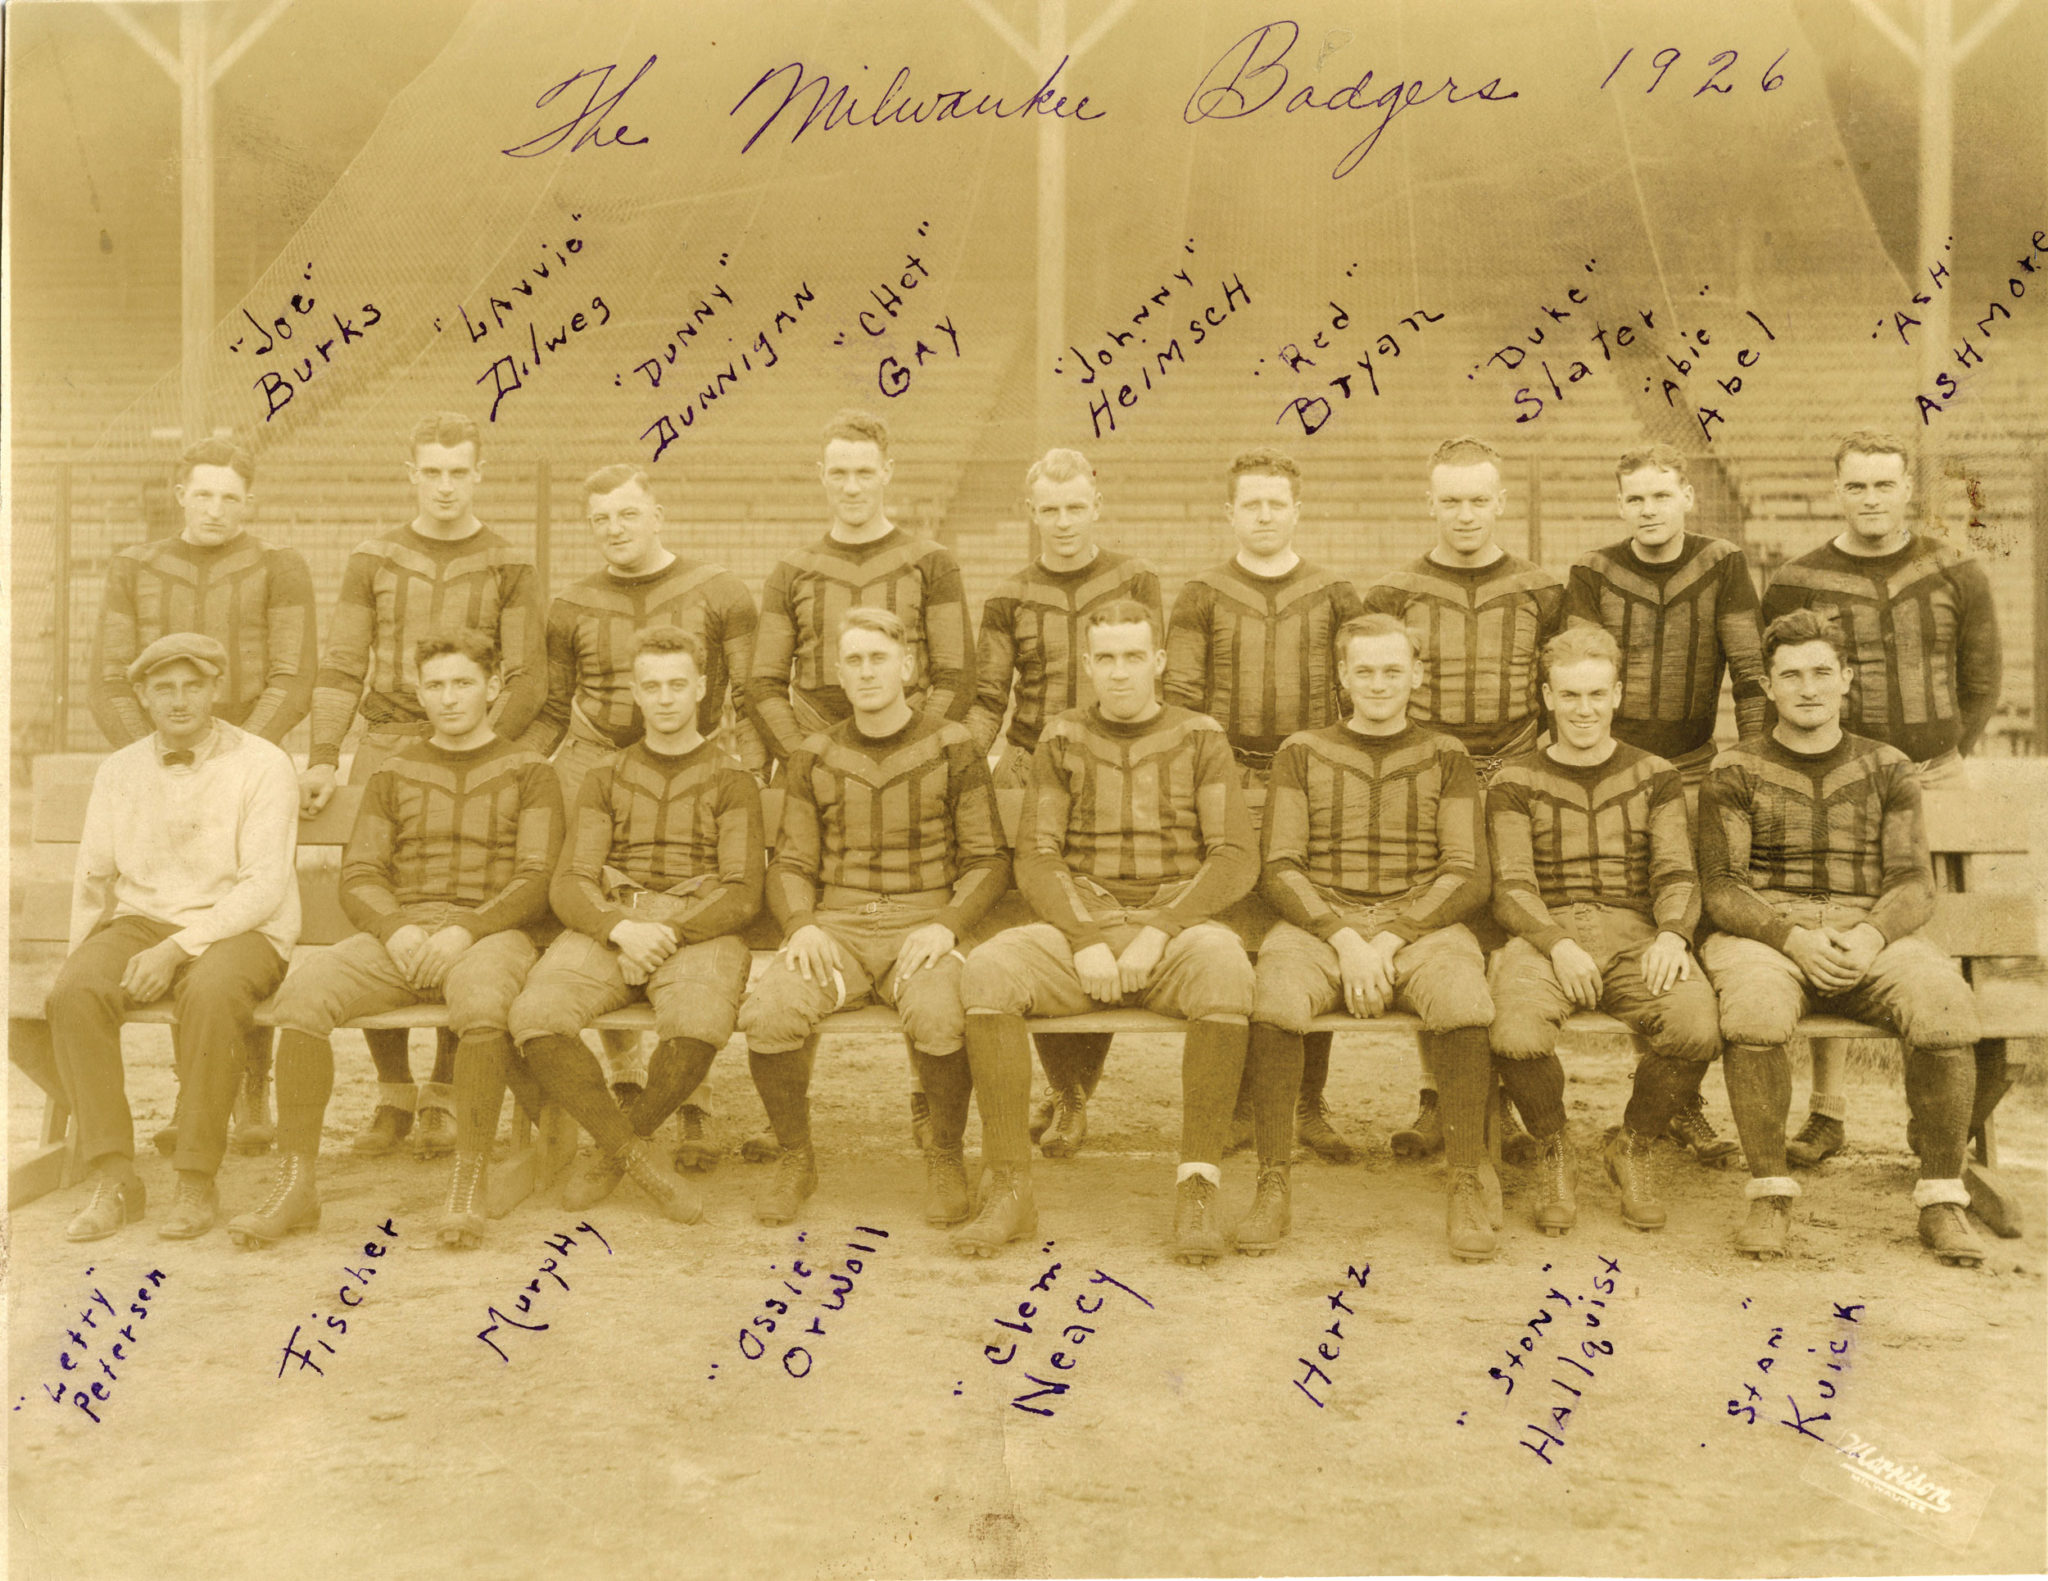 The Milwaukee Badgers 1926
"Joe"
Burks
"LAvvie"
Dilweg
"DUNNY"
DUNNIGAN
"CHet"
GAY
"Johnny"
HeiMscH
"Red"
Bryan
"Duke"
Slater
"Abie"
Abel
"ASH"
ASHMORe
"Lefty"
Petersen
Fischer
Murphy
"Ossie"
OrWoll
"Clem"
Neacy
Hertz
"Stony"
Hallquist
"Stan"
Kuick
Morrison
MILWAUKEE